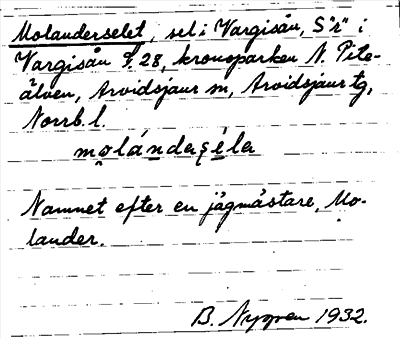 Molanderselet, sel i Vargisån, S"r" i
Vargisån f. 28, kronoparken N. Pite-
älven, Arvidsjaur sn, Arvidsjaur tg,
Norrb. l.
molándaşéla
Namnet efter en jägmästare, Mo-
lander.
B. Nygren 1932.